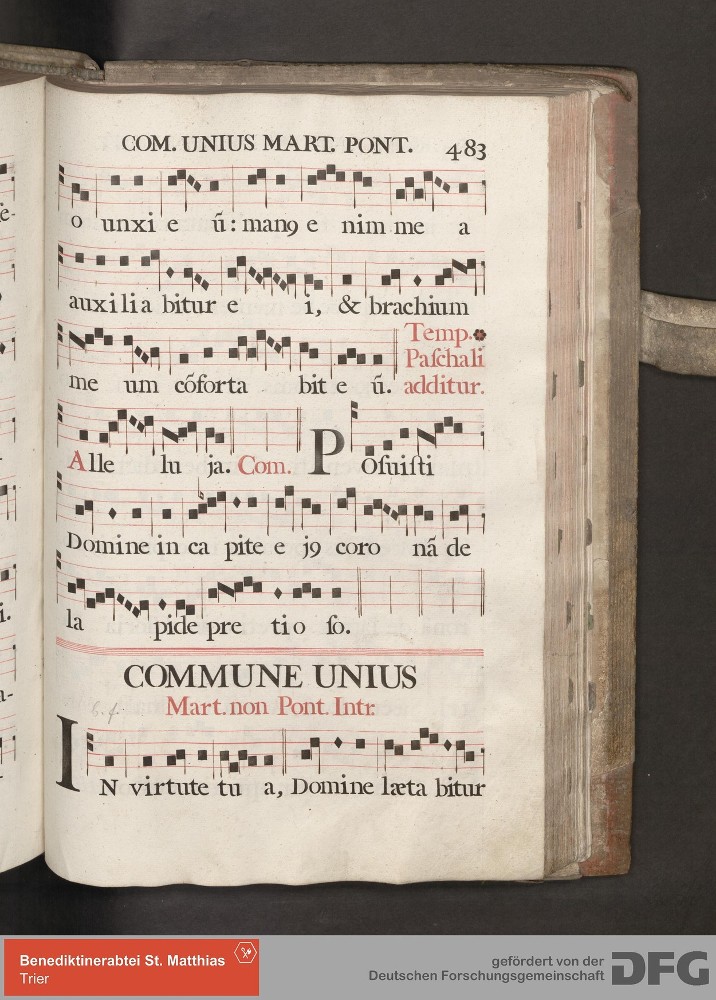 COM. UNIUS MART. PONT. 483
o unxi e ũ: man9 e nim me a
auxilia bitur e i, & brachium
Temp.
Paſchali
me um cõforta bit e ũ. additur.
Alle lu ja. Com. Poſuiſti
Domine in ca pite e j9 coro nã de
la pide pre tio ſo.
COMMUNE UNIUS
Mart. non Pont. Intr.
IN virtute tu a, Domine læta bitur
Benediktinerabtei St. Matthias
Trier
gefördert von der
Deutschen Forschungsgemeinschaft DFG